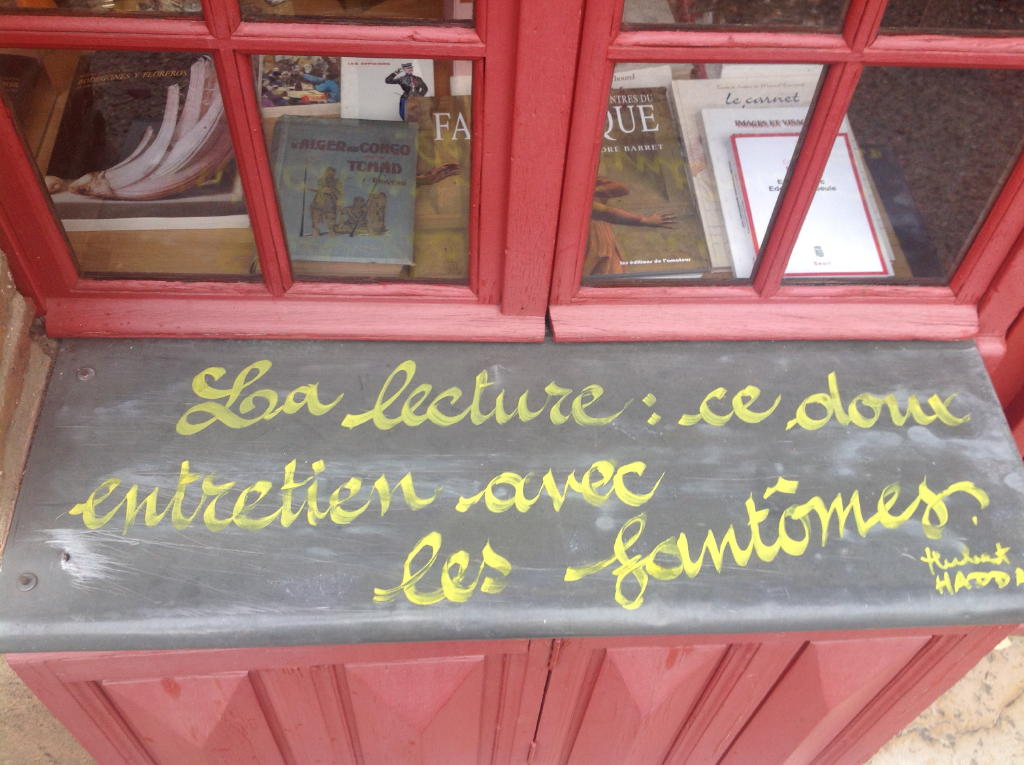 BODEGONES Y FLOREROS
D'ALGER AU CONGO
TCHAD
FA
NTRES DU
QUE
DRE BARRET
les éditions de l'amateur
le carnet
IMAGES ET VISAG
Seuil
La lecture : ce doux
entretien avec
les fantômes.
Hubert
HADDA